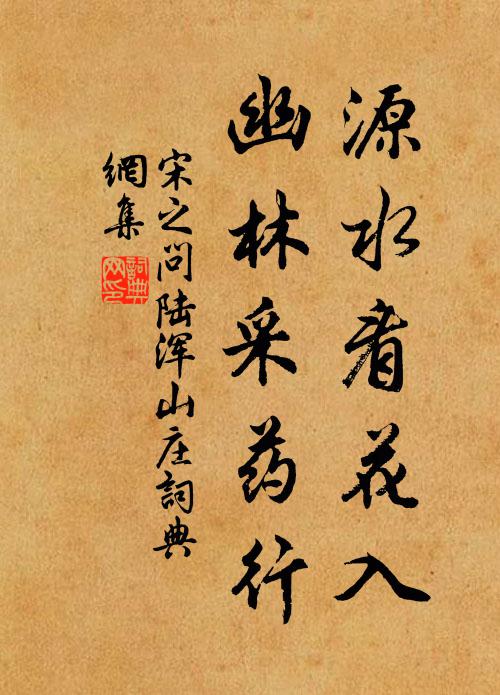 源水看花入
幽林采药行
宋之问陆浑山庄詞典
網集
詞典
网印